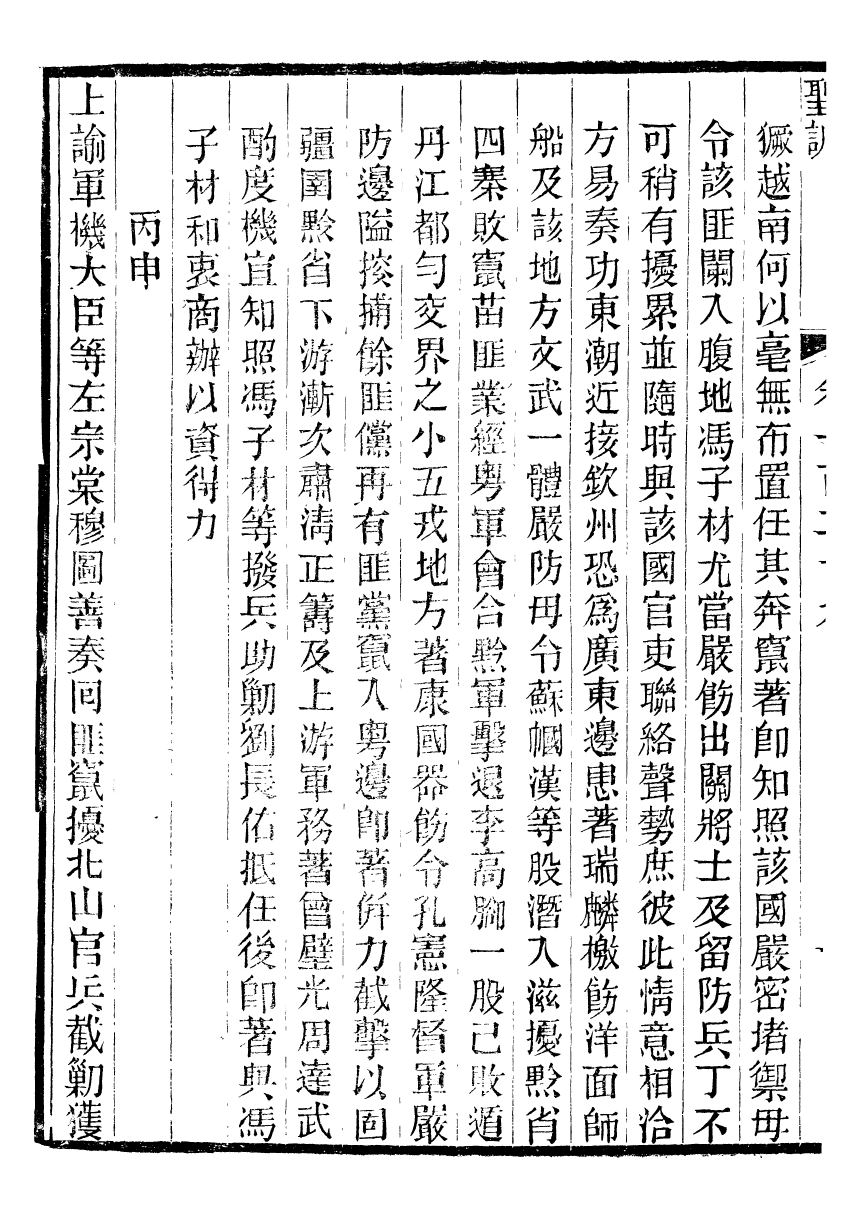 聖訓
獗越南何以毫無布置任其奔竄著卽知照該國嚴密堵禦毋
令該匪闌入腹地馮子材尤當嚴飭出關將士及留防兵丁不
可稍有擾累並隨時與該國官吏聯絡聲勢庶彼此情意相洽
方易奏功東潮近接欽州恐爲廣東邊患著瑞麟檄飭洋面師
船及該地方文武一體嚴防毋令蘇幗漢等股潛入滋擾黔省
四寨敗竄苗匪業經粵軍會合黔軍擊退李高腳一股已敗遁
丹江都勻交界之小五戎地方著康國器飭令孔憲隆督軍嚴
防邊隘搜捕餘匪儻再有匪黨竄入粵邊卽著倂力截擊以固
疆圉黔省下游漸次肅淸正籌及上游軍務著曾璧光周達武
酌度機宜知照馮子材等撥兵助勦劉長佑抵任後卽著與馮
子材和衷商辦以資得力
丙申
上諭軍機大臣等左宗棠穆圖善奏回匪竄擾北山官兵截勦獲